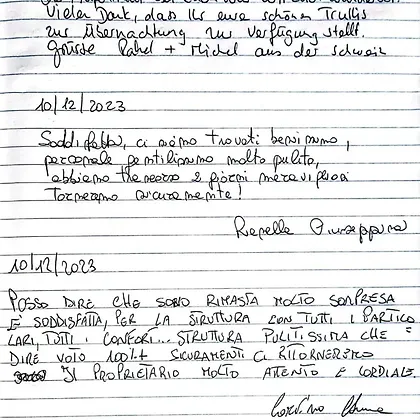 Vielen Dank, dass Ihr eure schönen Trullis
zur Übernachtung zur Verfügung stellt.
Grüsse Rahel + Michel aus der Schweiz
10/12/2023
Soddisfatta, ci siamo trovati benissimo,
personale gentilissimo molto pulito,
abbiamo trascorso 2 giorni meravigliosi
Torneremo sicuramente!
Giuseppina
10/12/2023
POSSO DIRE CHE SONO RIMASTA MOLTO SORPRESA
E SODDISFATTA, PER LA STRUTTURA CON TUTTI I PARTICO
LARI, TUTTI I CONFORT... STRUTTURA PULITISSIMA CHE
DIRE VOTO 100%+ SICURAMENTI CI RITORNEREMO
IL PROPRIETARIO MOLTO ATTENTO E CORDIALE.